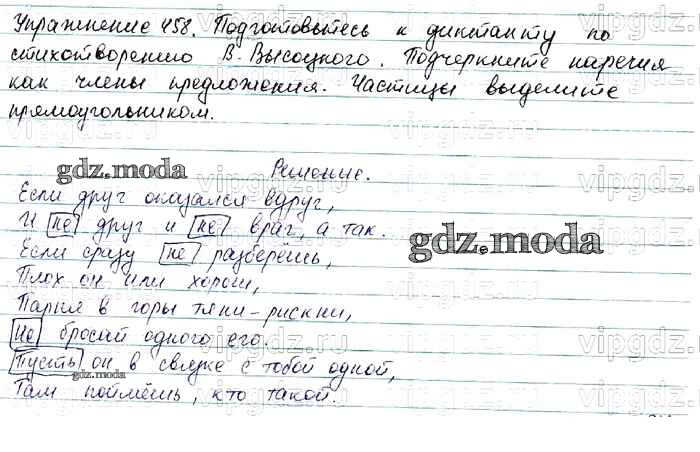 Упражнение 458. Подготовьтесь к диктанту по
стихотворению В. Высоцкого. Подчеркните наречия
как члены предложения. Частицы выделите
прямоугольником.
gdz.moda Решение.
Если друг оказался вдруг,
И не друг и не враг, а так.
gdz.moda
Если сразу не разберёшь,
Плох он или хорош,
Парня в горы тяни-рискни,
Не бросай одного его.
Пусть он в связке с тобой одной,
gdz.moda
Там поймёшь, кто такой.